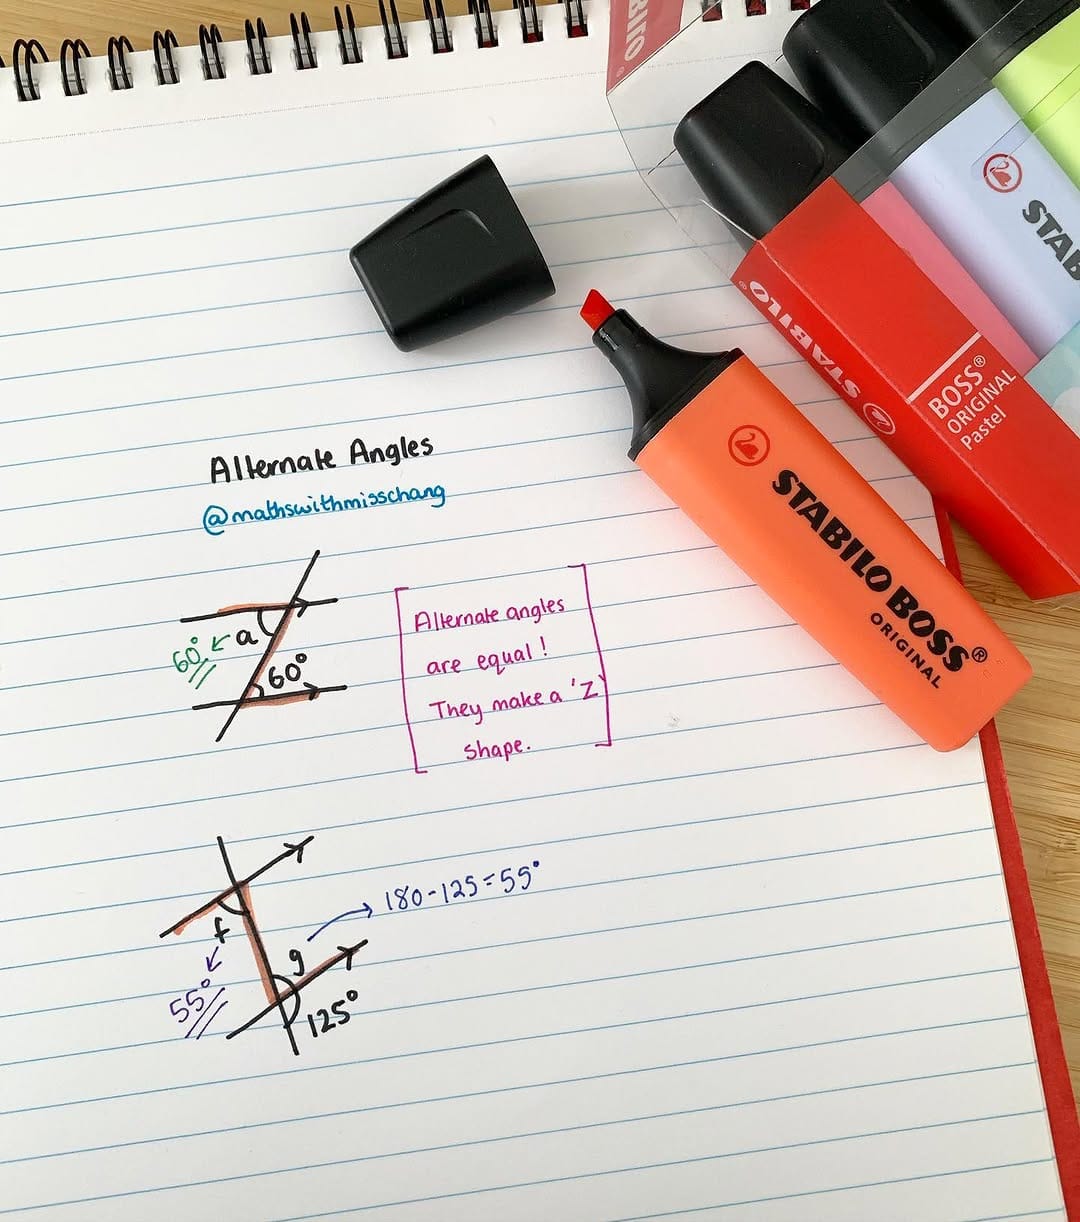 Alternate Angles
@mathswithmisschang
a
60°
60°
Alternate angles
are equal!
They make a 'Z'
shape.
f
55°
g
125°
180-125=55°
STABILO BOSS®
ORIGINAL
STABILO®
BOSS®
ORIGINAL
Pastel
STAB
RILO®